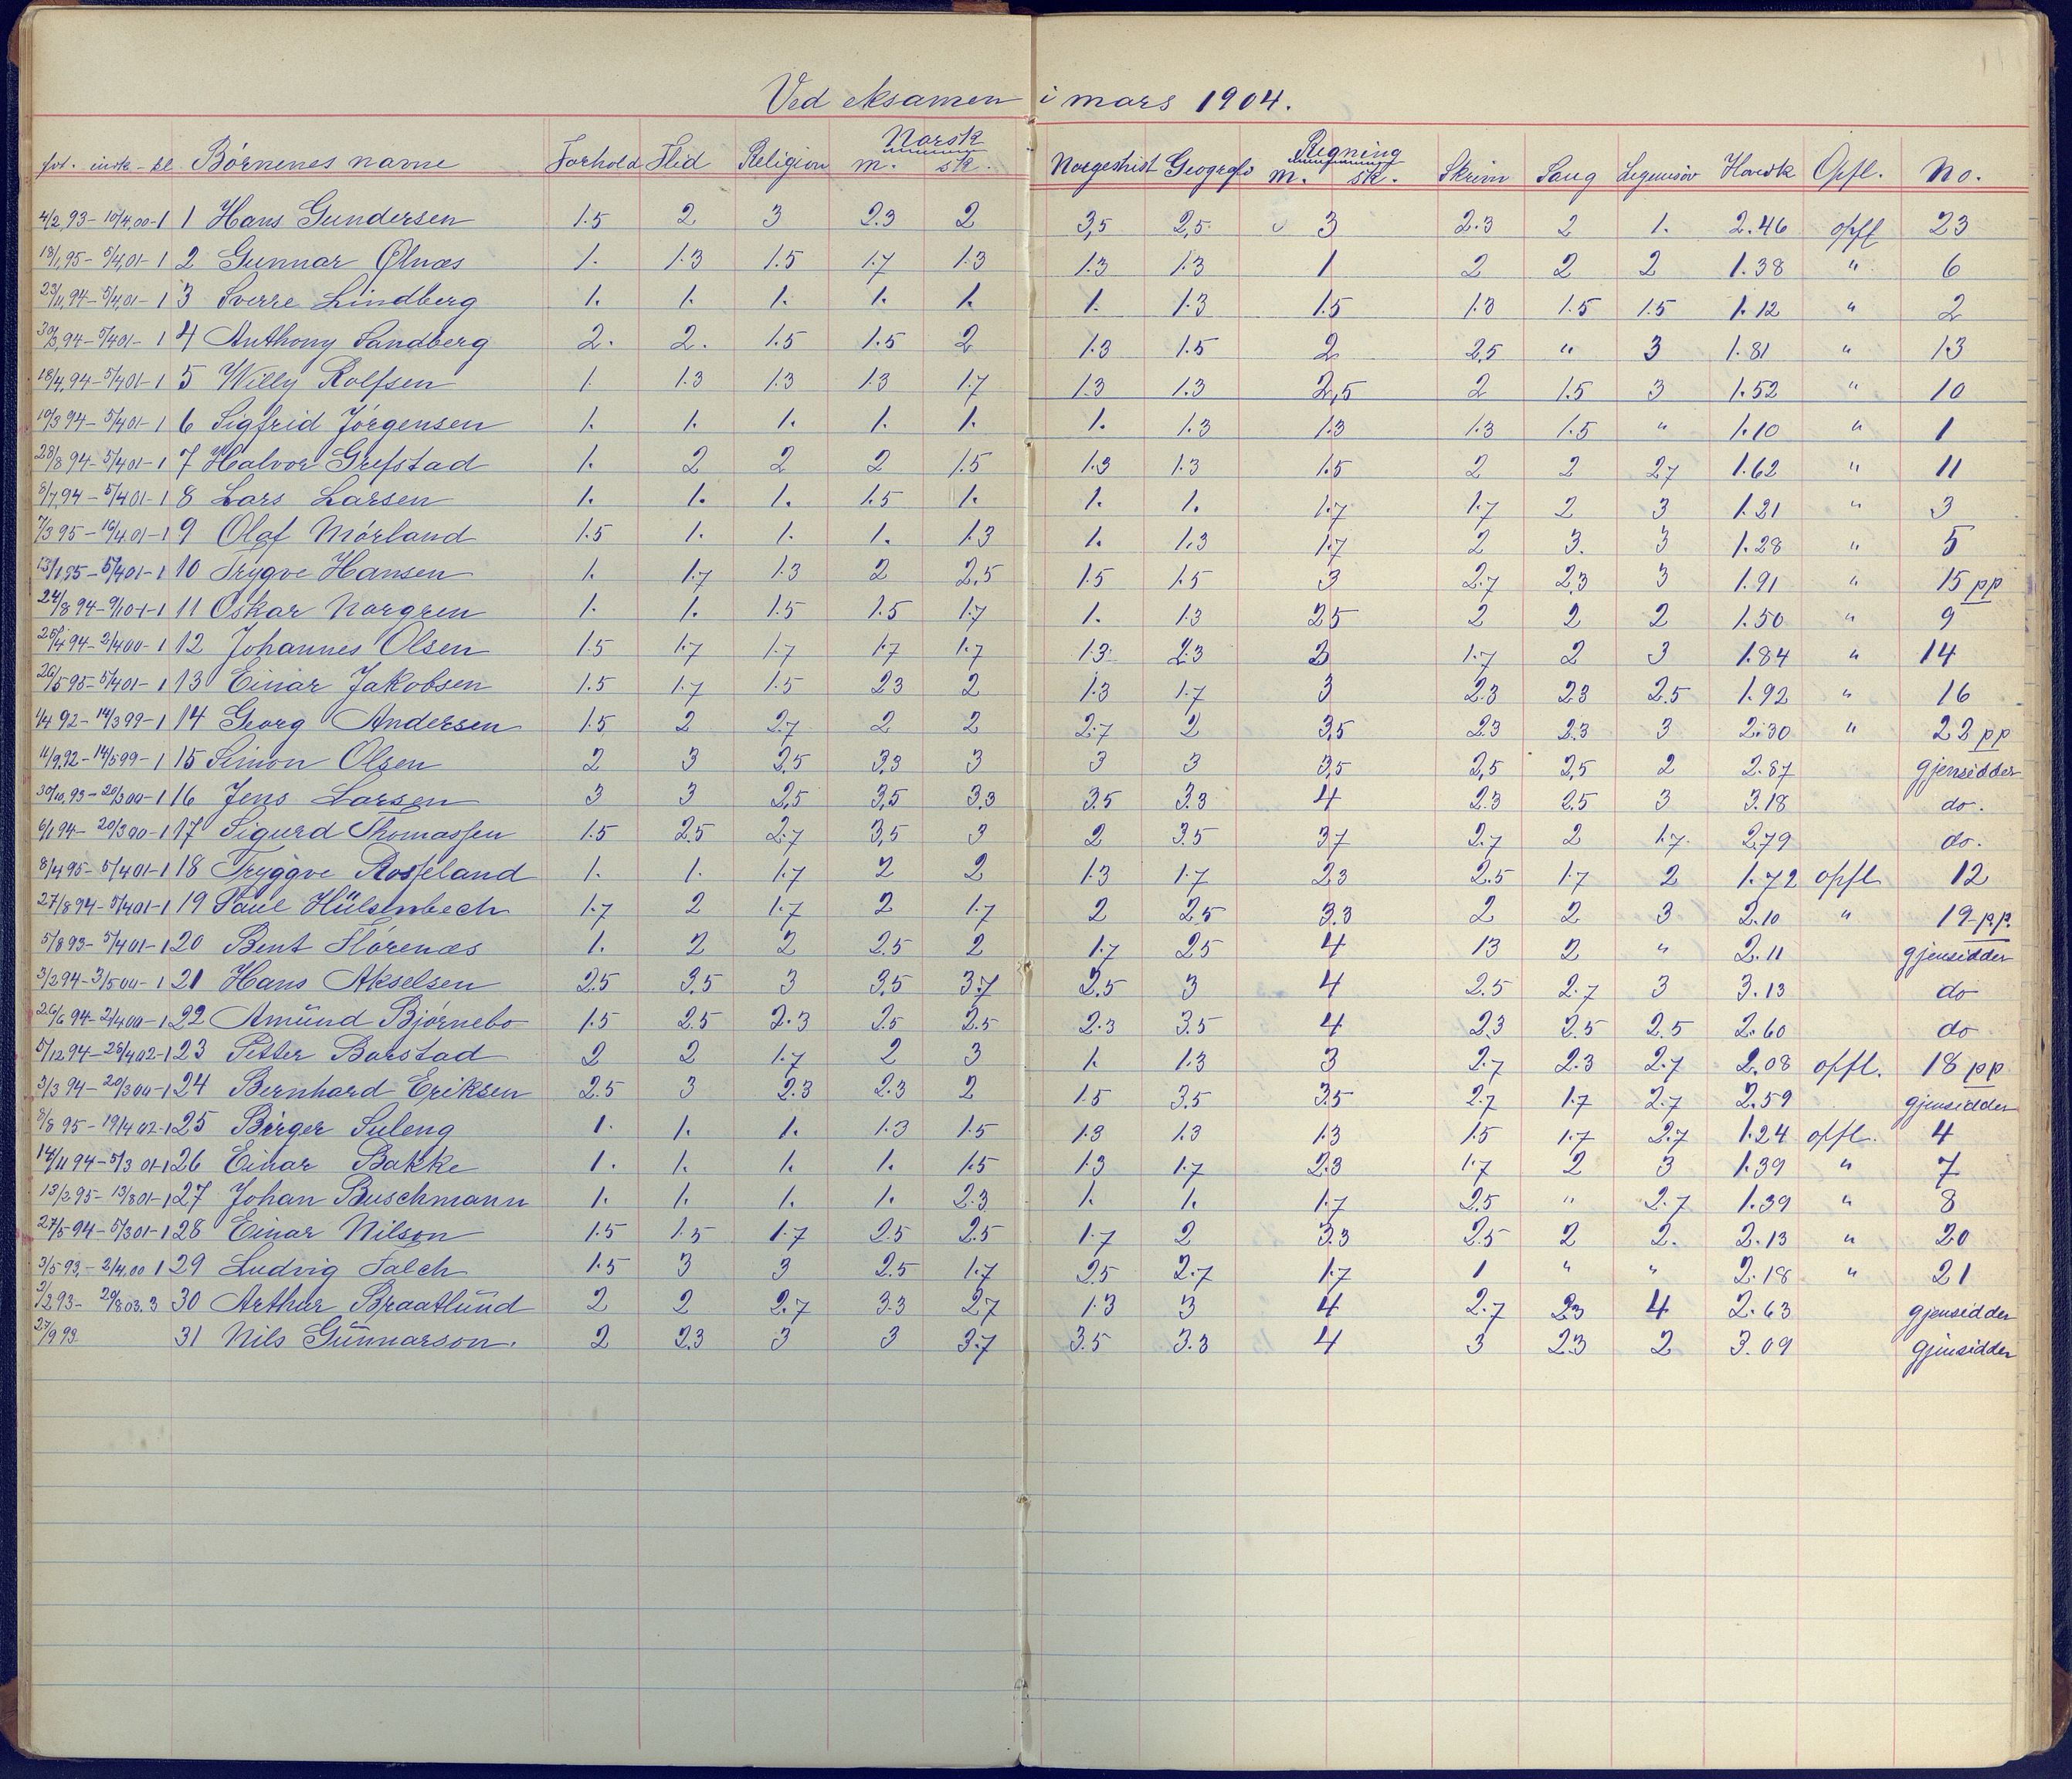 Ved eksamen i mars 1904.
Norsk Regning
föt. indk - kl. Börnenes navne Forhold Flid Religion m. sk. Norgeshist Geografi m. sk. Skrivn Sang Legemsöv Hovedk Opfl. No.
4/2 93 - 10/4 00 - 1 1 Hans Gundersen 1.5 2 3 2.3 2 3,5 2,5 3 2.3 2 1. 2.46 opfl 23
18/1 95 - 5/4 01 - 1 2 Gunnar Ølnæs 1. 1.3 1.5 1.7 1.3 1.3 1.3 1 2 2 2 1.38 " 6
23/11 94 - 5/4 01 - 1 3 Sverre Lindberg 1. 1. 1. 1. 1. 1. 1.3 1.5 1.3 1.5 1.5 1.12 " 2
30/3 94 - 5/4 01 - 1 4 Anthony Sandberg 2. 2. 1.5 1.5 2 1.3 1.5 2 2,5 " 3 1.81 " 13
18/4 94 - 5/4 01 - 1 5 Willy Rolfsen 1. 1.3 1.3 1.3 1.7 1.3 1.3 2,5 2 1.5 3 1.52 " 10
10/3 94 - 5/4 01 - 1 6 Sigfrid Jörgensen 1. 1. 1. 1. 1. 1. 1.3 1.3 1.3 1.5 " 1.10 " 1
28/8 94 - 5/4 01 - 1 7 Halvor Grefstad 1. 2 2 2 1.5 1.3 1.3 1.5 2 2 2.7 1.62 " 11
8/7 94 - 5/4 01 - 1 8 Lars Larsen 1. 1. 1. 1.5 1. 1. 1. 1.7 1.7 2 3 1.21 " 3
7/3 95 - 16/4 01 - 1 9 Olaf Mörland 1.5 1. 1. 1. 1.3 1. 1.3 1.7 2 3. 3 1.28 " 5
13/1 95 - 5/4 01 - 1 10 Trygve Hansen 1. 1.7 1.3 2 2,5 1.5 1.5 3 2.7 2,3 3 1.91 " 15 pp
24/8 94 - 9/10 - 1 - 1 11 Oskar Norgren 1. 1. 1.5 1.5 1.7 1. 1.3 2.5 2 2 2 1.50 " 9
25/4 94 - 2/4 00 - 1 12 Johannes Olsen 1.5 1.7 1.7 1.7 1.7 1.3 2.3 3 1.7 2 3 1.84 " 14
26/5 95 - 5/4 01 - 1 13 Einar Jakobsen 1.5 1.7 1.5 2.3 2 1.3 1.7 3 2.3 2.3 2.5 1.92 " 16
1/4 92 - 14/3 99 - 1 14 Georg Andersen 1.5 2 2.7 2 2 2.7 2 3,5 2.3 2.3 3 2.30 " 22 pp
11/9 92 - 14/5 99 - 1 15 Simon Olsen 2 3 2,5 3.3 3 3 3 3,5 2,5 2,5 2 2.87 gjensidder
30/10 93 - 20/3 00 - 1 16 Jens Larsen 3 3 2,5 3,5 3.3 3.5 3.3 4 2.3 2.5 3 3.18 do.
6/1 94 - 20/3 00 - 1 17 Sigurd Thomassen 1.5 2.5 2.7 3,5 3 2 3.5 3.7 2.7 2 1.7. 2.79 do.
8/4 95 - 5/4 01 - 1 18 Tryggve Rosseland 1. 1. 1.7 2 2 1.3 1.7 2.3 2.5 1.7 2 1.72 opfl 12
27/8 94 - 5/4 01 - 1 19 Paul Hülsenbech 1.7 2 1.7 2 1.7 2 2.5 3.3 2 2 3 2.10 " 19 p.p.
5/8 93 - 5/4 01 - 1 20 Bent Flörenæs 1. 2 2 2.5 2 1.7 2.5 4 1.3 2 " 2.11 gjensidder
3/2 94 - 3/5 00 - 1 21 Hans Akselsen 2.5 3.5 3 3,5 3.7 2.5 3 4 2.5 2.7 3 3.13 do
26/6 94 - 2/4 00 - 1 22 Amünd Björnebo 1.5 2.5 2.3 2.5 2.5 2.3 3.5 4 2.3 2.5 2.5 2.60 do
5/12 94 - 28/4 02 - 1 23 Petter Barstad 2 2 1.7 2 3 1. 1.3 3 2.7 2.3 2.7 2.08 opfl. 18 pp
3/3 94 - 20/3 00 - 1 24 Bernhard Eriksen 2.5 3 2.3 2.3 2 1.5 3.5 3.5 2.7 1.7 2.7 2.59 gjensidder
8/8 95 - 19/4 02 - 1 25 Birger Suleng 1. 1. 1. 1.3 1.5 1.3 1.3 1.3 1.5 1.7 2.7 1.24 opfl. 4
14/11 94 - 5/3 01 - 1 26 Einar Bakke 1. 1. 1. 1. 1.5 1.3 1.7 2.3 1.7 2 3 1.39 " 7
13/2 95 - 13/8 01 - 1 27 Johan Buschmann 1. 1. 1. 1. 2.3 1. 1. 1.7 2.5 " 2.7 1.39 " 8
27/5 94 - 5/3 01 - 1 28 Einar Nilson 1.5 1.5 1.7 2.5 2.5 1.7 2 3.3 2.5 2 2. 2.13 " 20
3/5 93 - 2/4 00 1 29 Ludvig Falch 1.5 3 3 2.5 1.7 2.5 2.7 1.7 1 " " 2.18 " 21
2/2 93 - 29/8 03. 3 30 Arthur Braatlünd 2 2 2.7 3.3 2.7 1.3 3 4 2.7 2.3 4 2.63 gjensidder
27/9 93 31 Nils Günnarson. 2 2.3 3 3 3.7 3.5 3.3 4 3 2.3 2 3.09 gjensidder